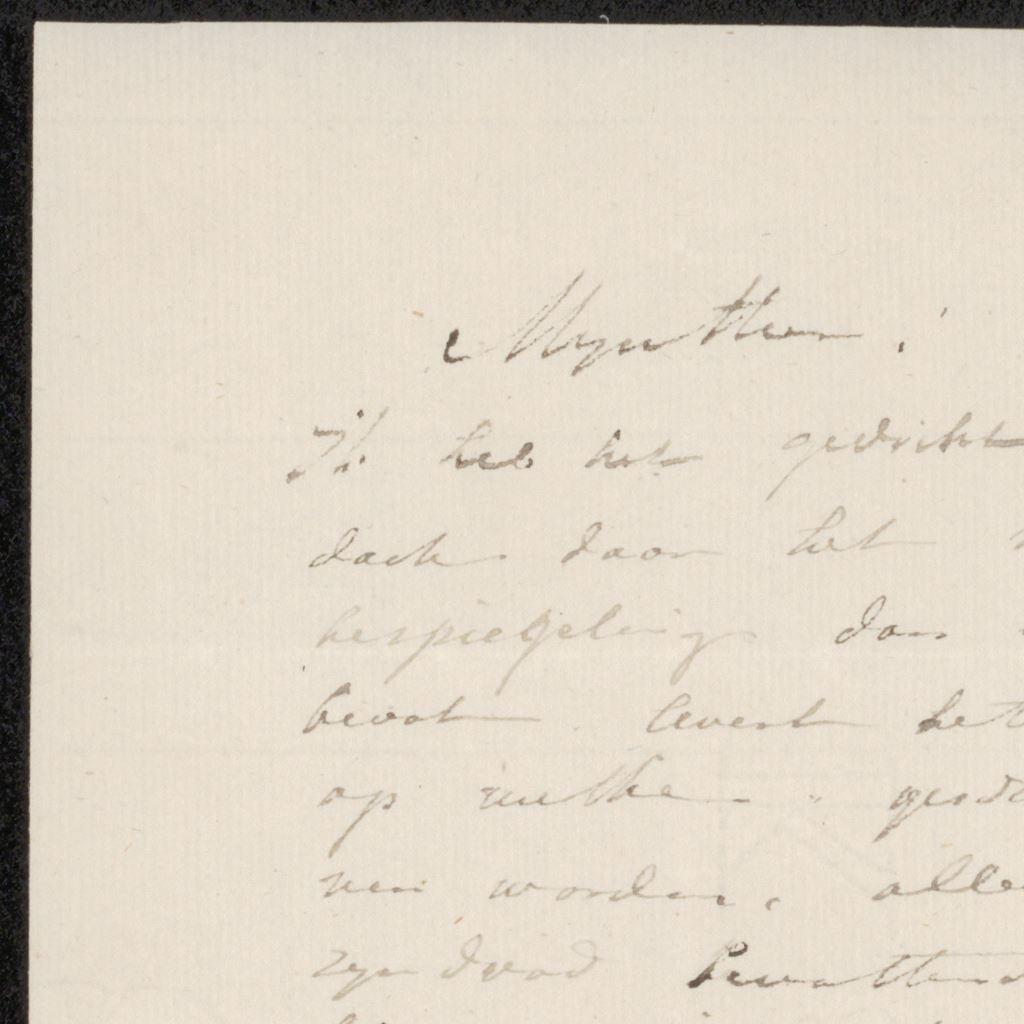 Mijn Heer!
Ik heb het gedicht
doch daar het
bespiegeling dan
bevat levert het
op welke
nen worden, alle
zyn dood bevattend